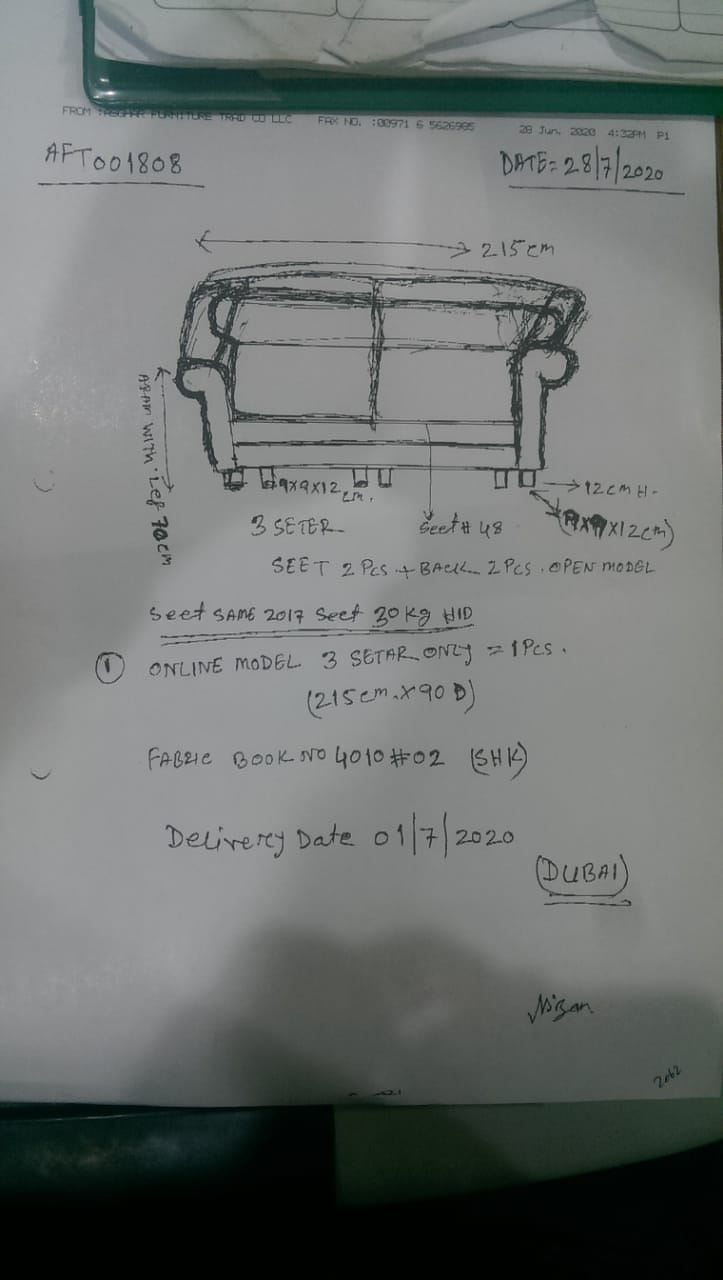 FROM : ASGHAR FURNITURE TRAD CO LLC FAX NO. :00971 6 5626985 28 Jun. 2020 4:32PM P1
AFT001808
DATE= 28/7/2020
215cm
ARAM WITH. Leg 70cm
9X9X12 cm.
12cm H.
3 SETER
Seet# 48
(9X9X12cm)
SEET 2 Pcs + BACK 2 Pcs. OPEN MODEL
Seet SAME 2017 Seet 30kg HID
1 ONLINE MODEL 3 SETAR ONLY = 1Pcs.
(215cm.X90 D)
FABRIC BOOK NO 4010#02 (SHK)
Delivery Date 01/7/2020
(DUBAI)
Nizam